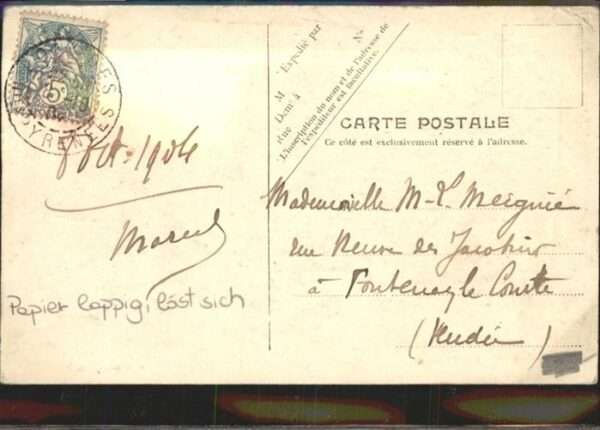 5
PYRENEES
8 Oct. 1904
Marcel
Papier lappig, löst sich
Expédié par
M
Dem^t à
Rue
N°
L'inscription du nom et de l'adresse de
l'expéditeur est facultative.
CARTE POSTALE
Ce côté est exclusivement réservé à l'adresse.
Mademoiselle M-L. Meignié
rue Neuve des Jacobins
à Fontenay le Comte
(Vendée)